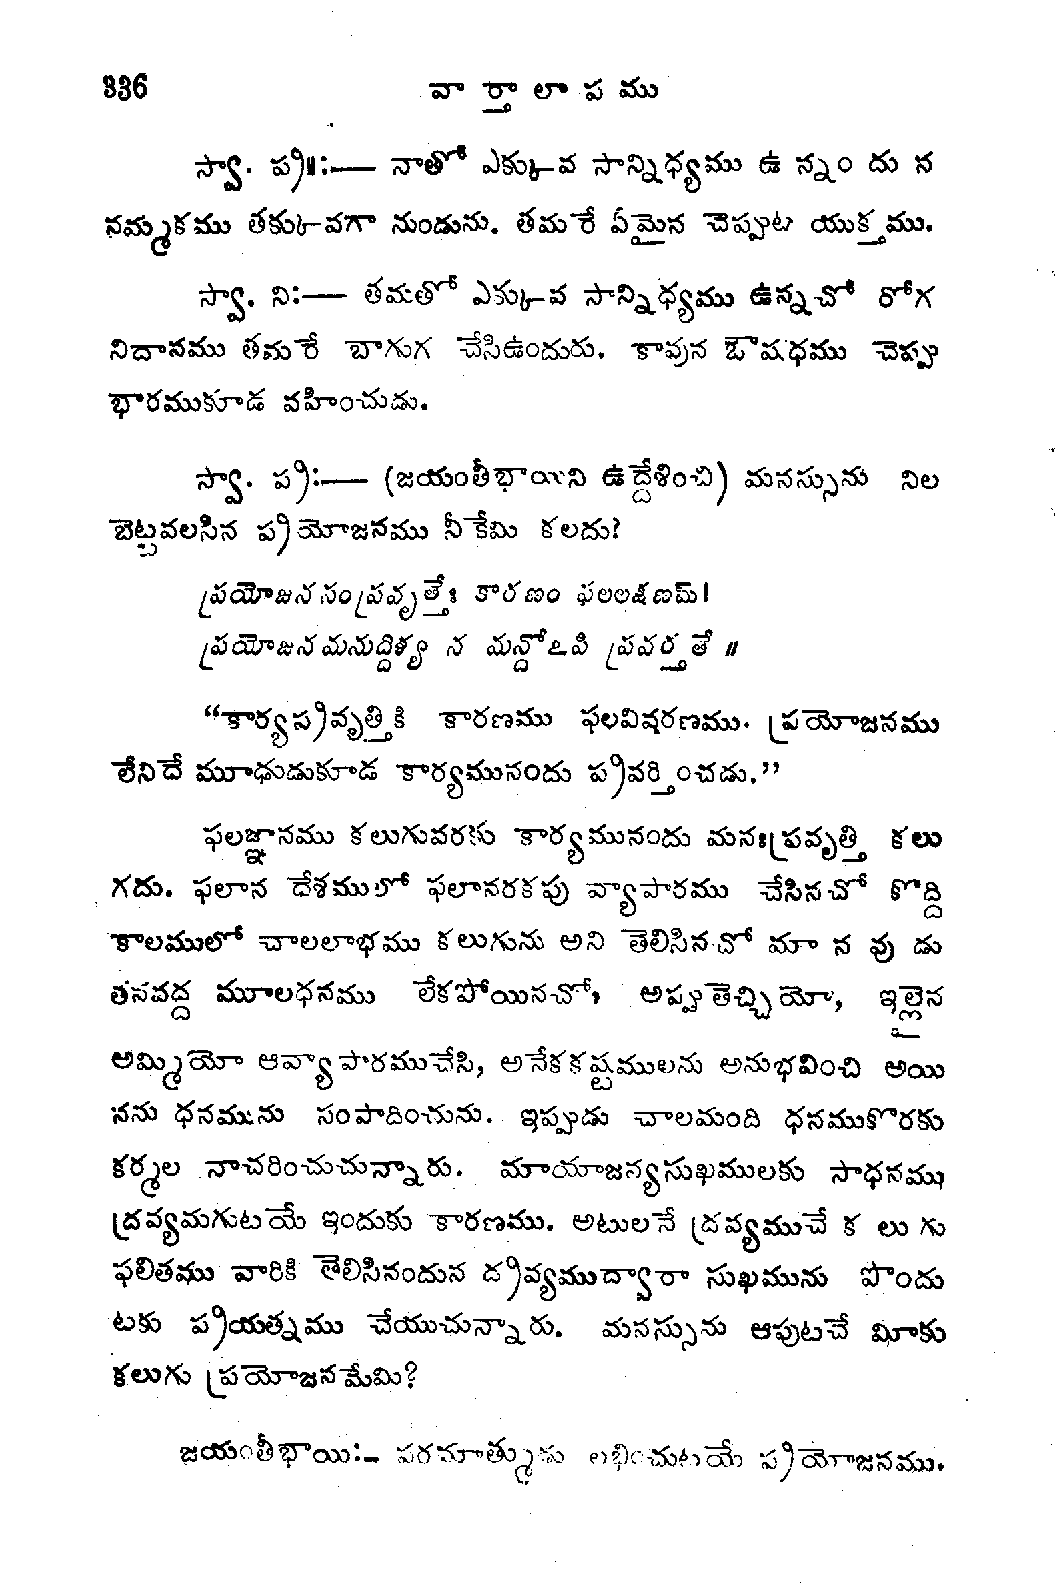 336 వార్తాలాపము
స్వా. ప్ర॥:— నాతో ఎక్కువ సాన్నిధ్యము ఉన్నందున
నమ్మకము తకుకవగా నుండును. తమరే ఏమైన చెప్పుట యుక్తము.
స్వా. ని:— తమతో ఎక్కువ సాన్నిధ్యము ఉన్నచో రోగ
నిదానము తమరే బాగుగ చేసిఉందురు. కావున ఔషధము చెప్పు
భారముకూడ వహించుడు.
స్వా. ప్ర:— (జయంతీభాయిని ఉద్దేశించి) మనస్సును నిల
బెట్టవలసిన ప్రయోజనము నీకేమి కలదు?
ప్రయోజనసంప్రవృత్తేః కారణం ఫలలక్షణమ్।
ప్రయోజనమనుద్దిశ్య న మన్దోఽపి ప్రవర్తతే ॥
“కార్యప్రవృత్తికి కారణము ఫలవివరణము. ప్రయోజనము
లేనిదే మూఢుడుకూడ కార్యమునందు ప్రవర్తించడు.”
ఫలజ్ఞానము కలుగువరకు కార్యమునందు మనఃప్రవృత్తి కలు
గదు. ఫలాన దేశములో ఫలానరకపు వ్యాపారము చేసినచో కొద్ది
కాలములో చాలలాభము కలుగును అని తెలిసినచో మానవుడు
తనవద్ద మూలధనము లేకపోయినచో, అప్పుతెచ్చియో, ఇల్లైన
అమ్మియో ఆవ్యాపారముచేసి, అనేకకష్టములను అనుభవించి అయి
నను ధనమును సంపాదించును. ఇప్పుడు చాలమంది ధనముకొరకు
కర్మల నాచరించుచున్నారు. మాయాజన్యసుఖములకు సాధనము
ద్రవ్యమగుటయే ఇందుకు కారణము. అటులనే ద్రవ్యముచే కలుగు
ఫలితము వారికి తెలిసినందున ద్రవ్యముద్వారా సుఖమును పొందు
టకు ప్రయత్నము చేయుచున్నారు. మనస్సును ఆపుటచే మీకు
కలుగు ప్రయోజనమేమి?
జయంతీభాయి:– పరమాత్ముకు లభించుటయే ప్రయోజనము.